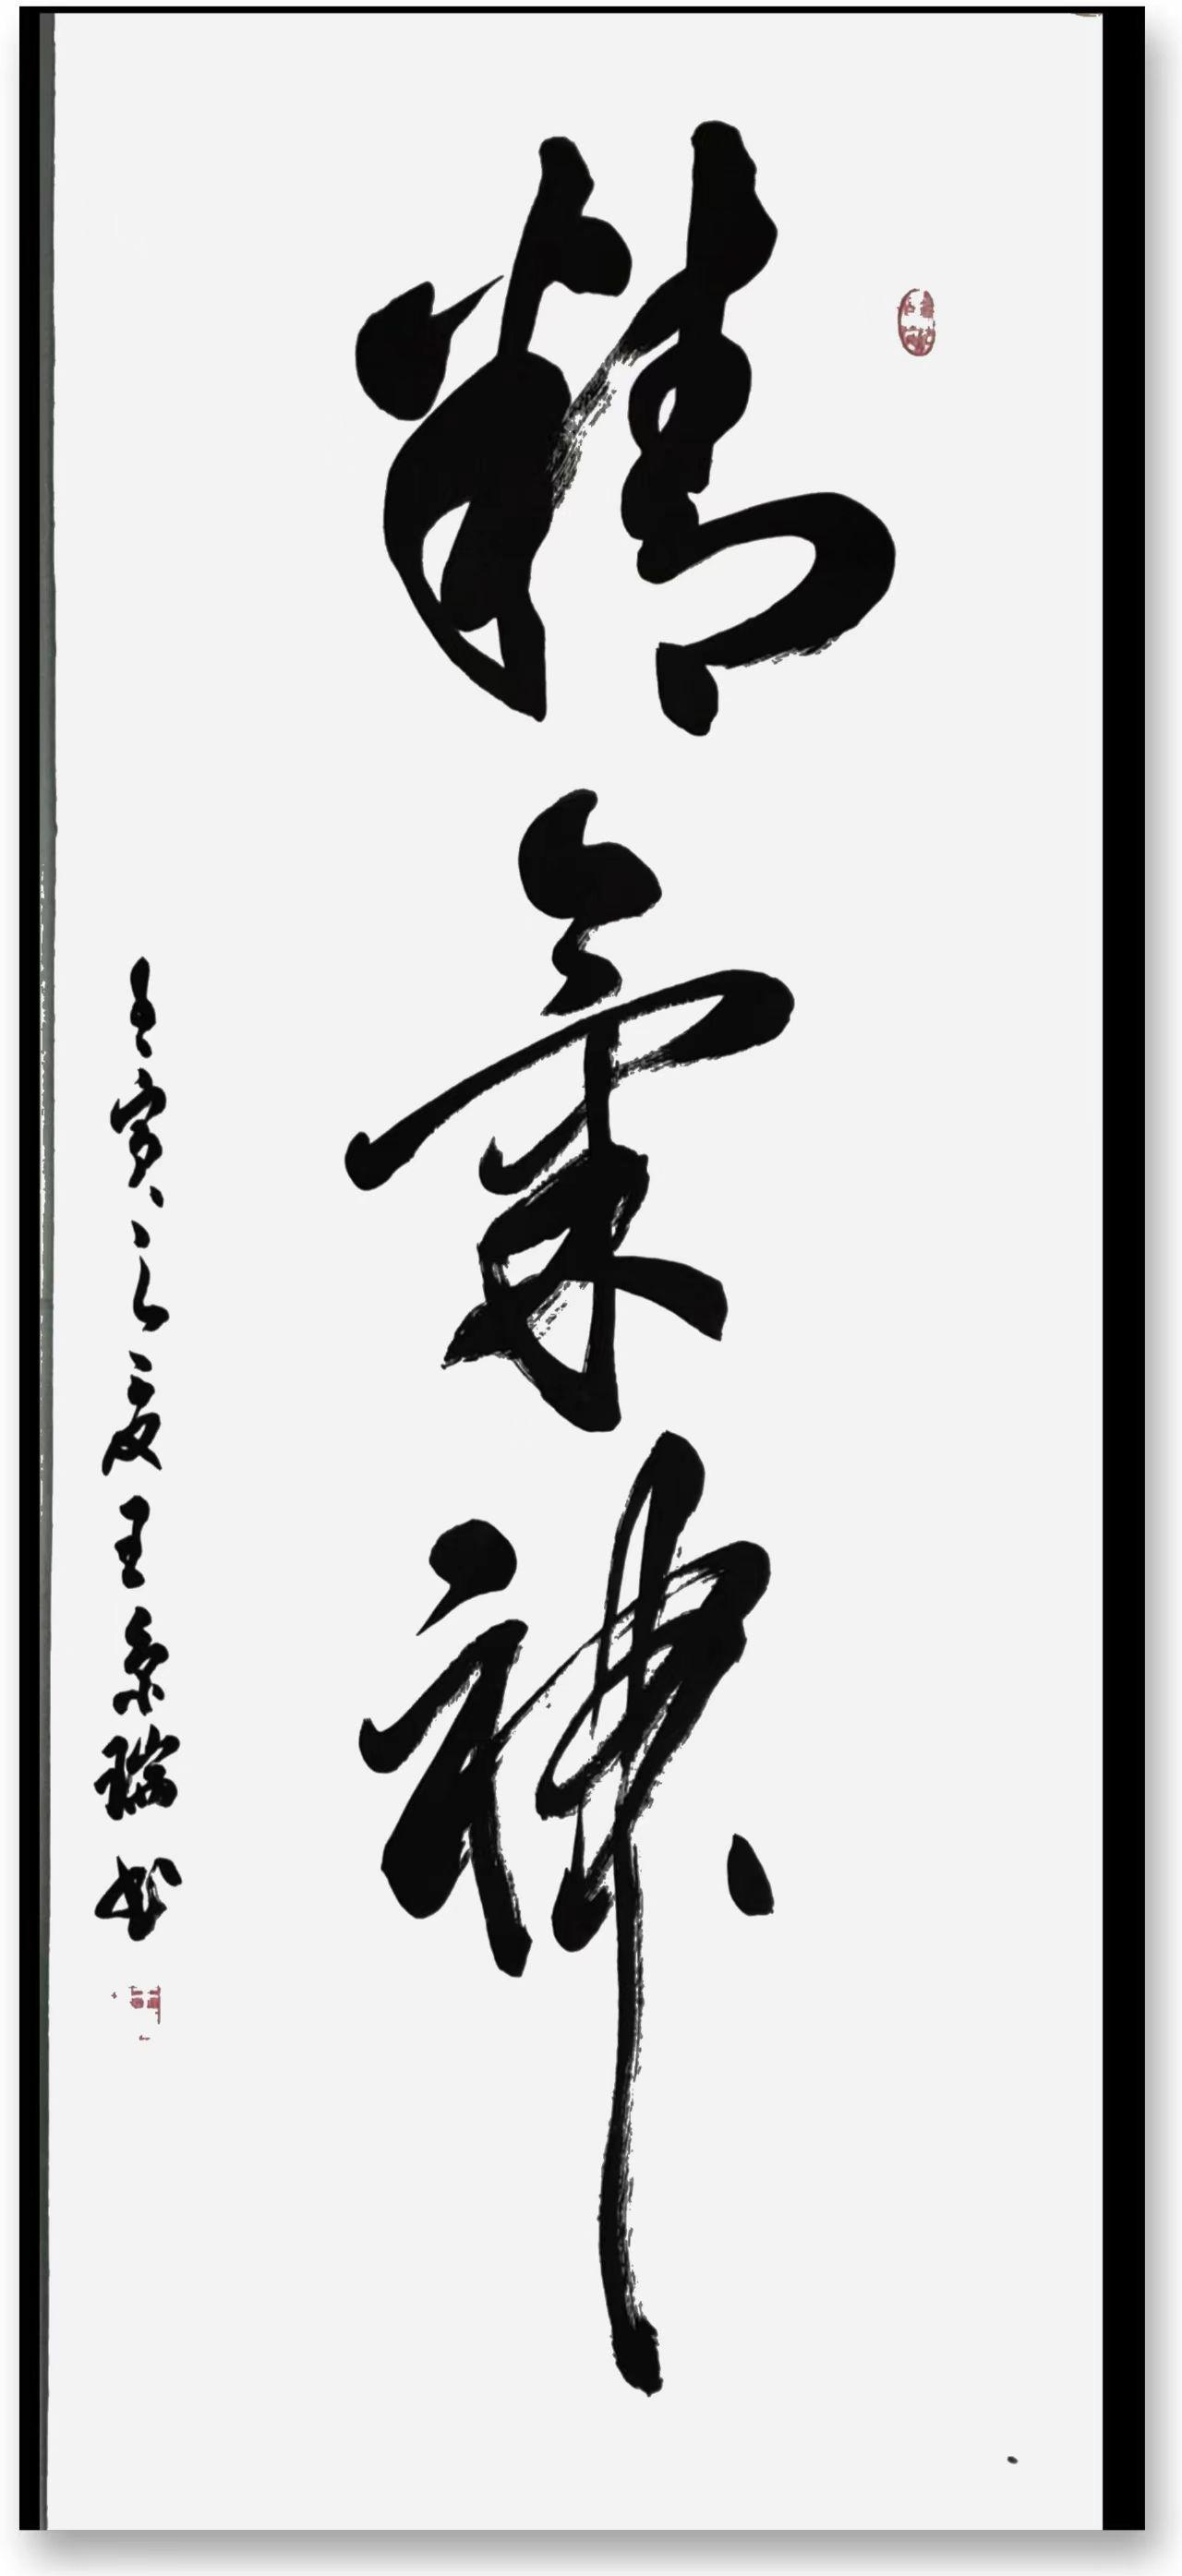 精氣神
壬寅之夏王景瑞书